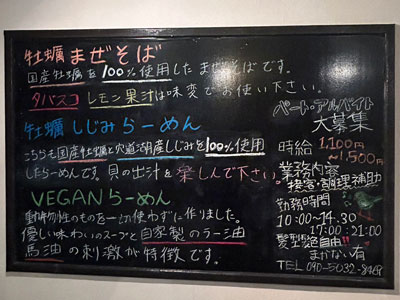 牡蠣まぜそば
国産牡蠣を100%使用したまぜそばです。
タバスコ レモン果汁は味変でお使い下さい。
牡蠣しじみらーめん
こちらも国産牡蠣と宍道湖産しじみを100%使用
したらーめんです。貝の出汁を楽しんで下さい。
VEGANらーめん
動物性のものを一切使わずに作りました。
優しい味わいのスープと自家製のラー油
馬油の刺激が特徴です。
パート・アルバイト
大募集
時給 1,100円
~1,500円
業務内容
接客・調理補助
勤務時間
10:00~14:30
17:00:21:00
髪型髪色自由!!
まかない有
TEL 090-5032-8469